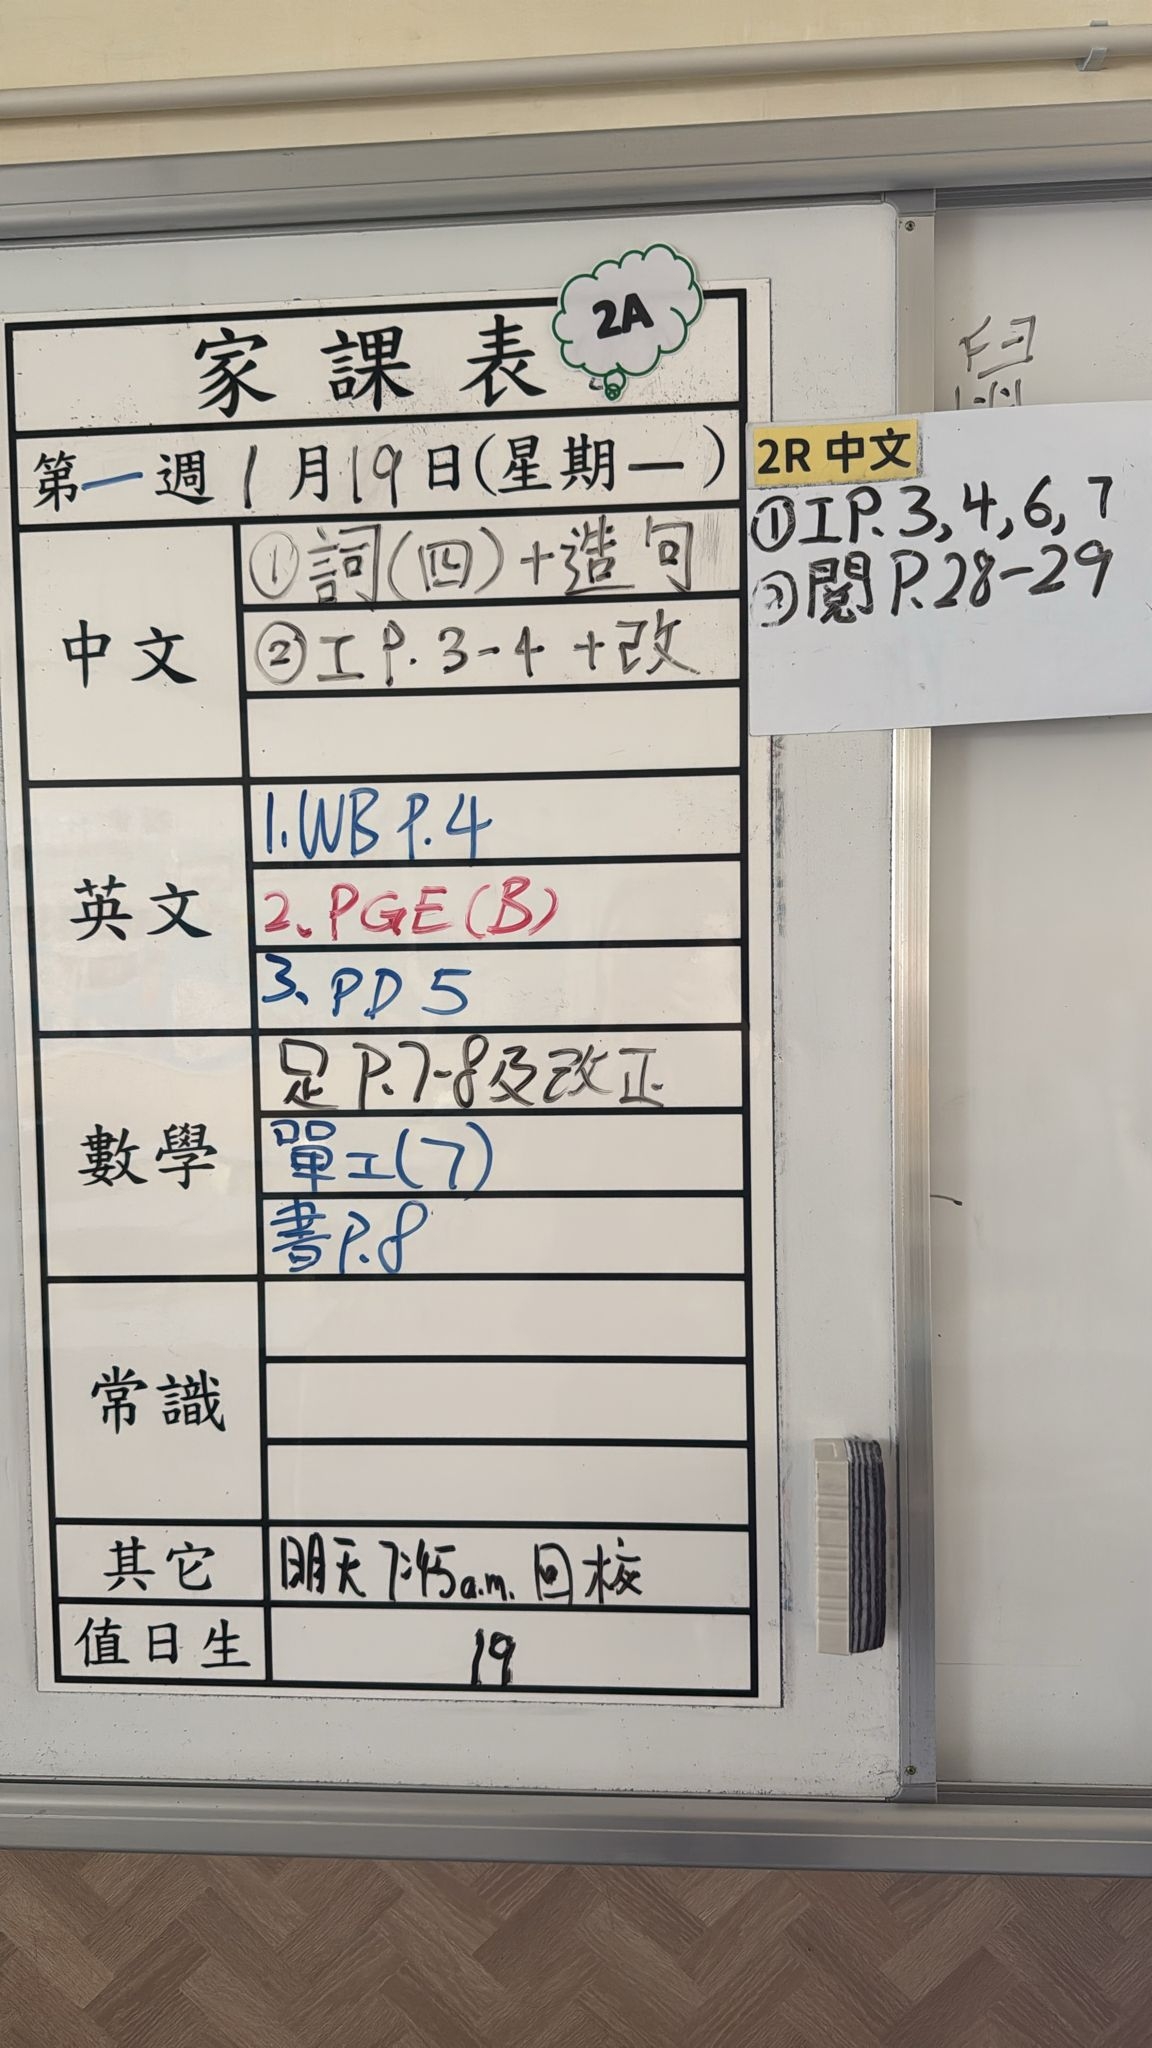 家課表
2A
第一週 1月19日(星期一)
中文
①詞(四)+造句
②工P.3-4+改
英文
1.WB P.4
2.PGE(B)
3.PD 5
數學
足P.7-8及改正
單工(7)
書P.8
常識
其它
明天7:45a.m.回校
值日生
19
2R 中文
①工P.3,4,6,7
②閱P.28-29